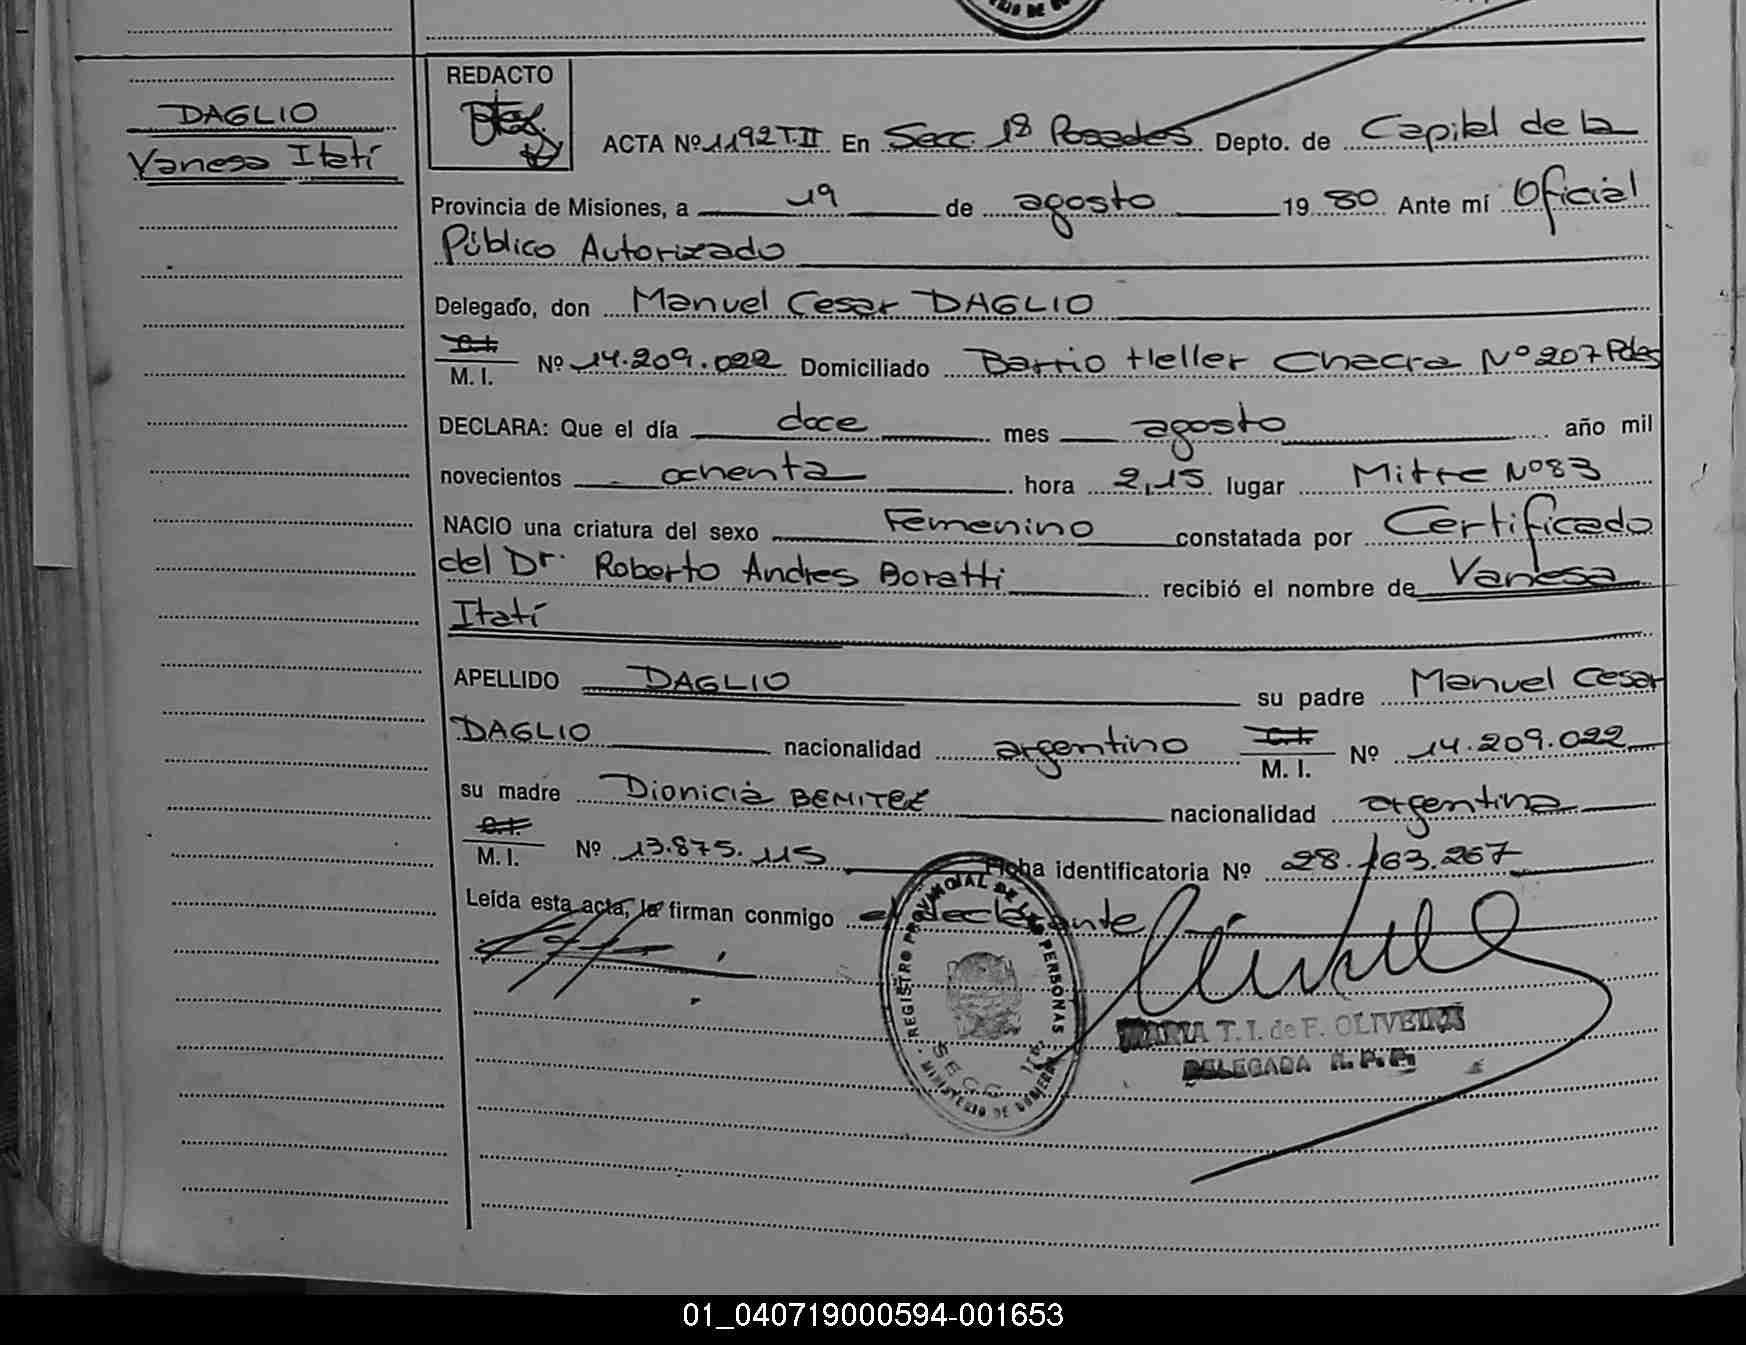 RIO DE GO
REDACTO
DAGLIO
Vanesa Itatí
ACTA Nº 1192 T.II En Secc. 1ª Posadas Depto. de Capital de la
Provincia de Misiones, a 19 de agosto 19 80 Ante mí Oficial
Público Autorizado
Delegado, don Manuel Cesar DAGLIO
C.I.
M. I. Nº 14.209.022 Domiciliado Barrio Heller Chacra Nº 207 Pdas
DECLARA: Que el día doce mes agosto año mil
novecientos ochenta hora 2,15 lugar Mitre Nº 83
NACIO una criatura del sexo Femenino constatada por Certificado
del Dr. Roberto Andres Boratti recibió el nombre de Vanesa
Itatí
APELLIDO DAGLIO su padre Manuel Cesar
DAGLIO nacionalidad argentino C.I. M. I. Nº 14.209.022
su madre Dionicia BENITEZ nacionalidad argentina
C.I.
M. I. Nº 13.875.115 Ficha identificatoria Nº 28.163.267
Leída esta acta, la firman conmigo el declarante
REGISTRO PROVINCIAL DE LAS PERSONAS
SECC. 1ª
MINISTERIO DE GOBIERNO
MARIA T. I. de F. OLIVEIRA
DELEGADA R. P. P.
01_040719000594-001653